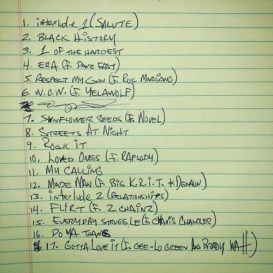 1. interlude 1 (SALUTE)
2. BLACK HISTORY
3. 1 OF THE HARDEST
4. ERA (F. DAVE EAST)
5. RESPECT MY GUN (F. ROC MARCIANO)
6. W.O.W. (F. YELAWOLF)
7. SUNFLOWER SEEDS (F. NOVEL)
8. STREETS AT NIGHT
9. ROCK IT
10. LOVED ONES (F. RAPSODY)
11. MY CALLING
12. MADE MAN (F. BIG K.R.I.T. +
13. interlude 2 (RELATIONSHIPS)
14. FLIRT (F. 2 CHAINZ)
15. EVERYDAY STRUGGLE (F. CHAVIS CHANDLER)
16. DO YA THANG
17. GOTTA LOVE IT (F. CEE-LO GREEN AND